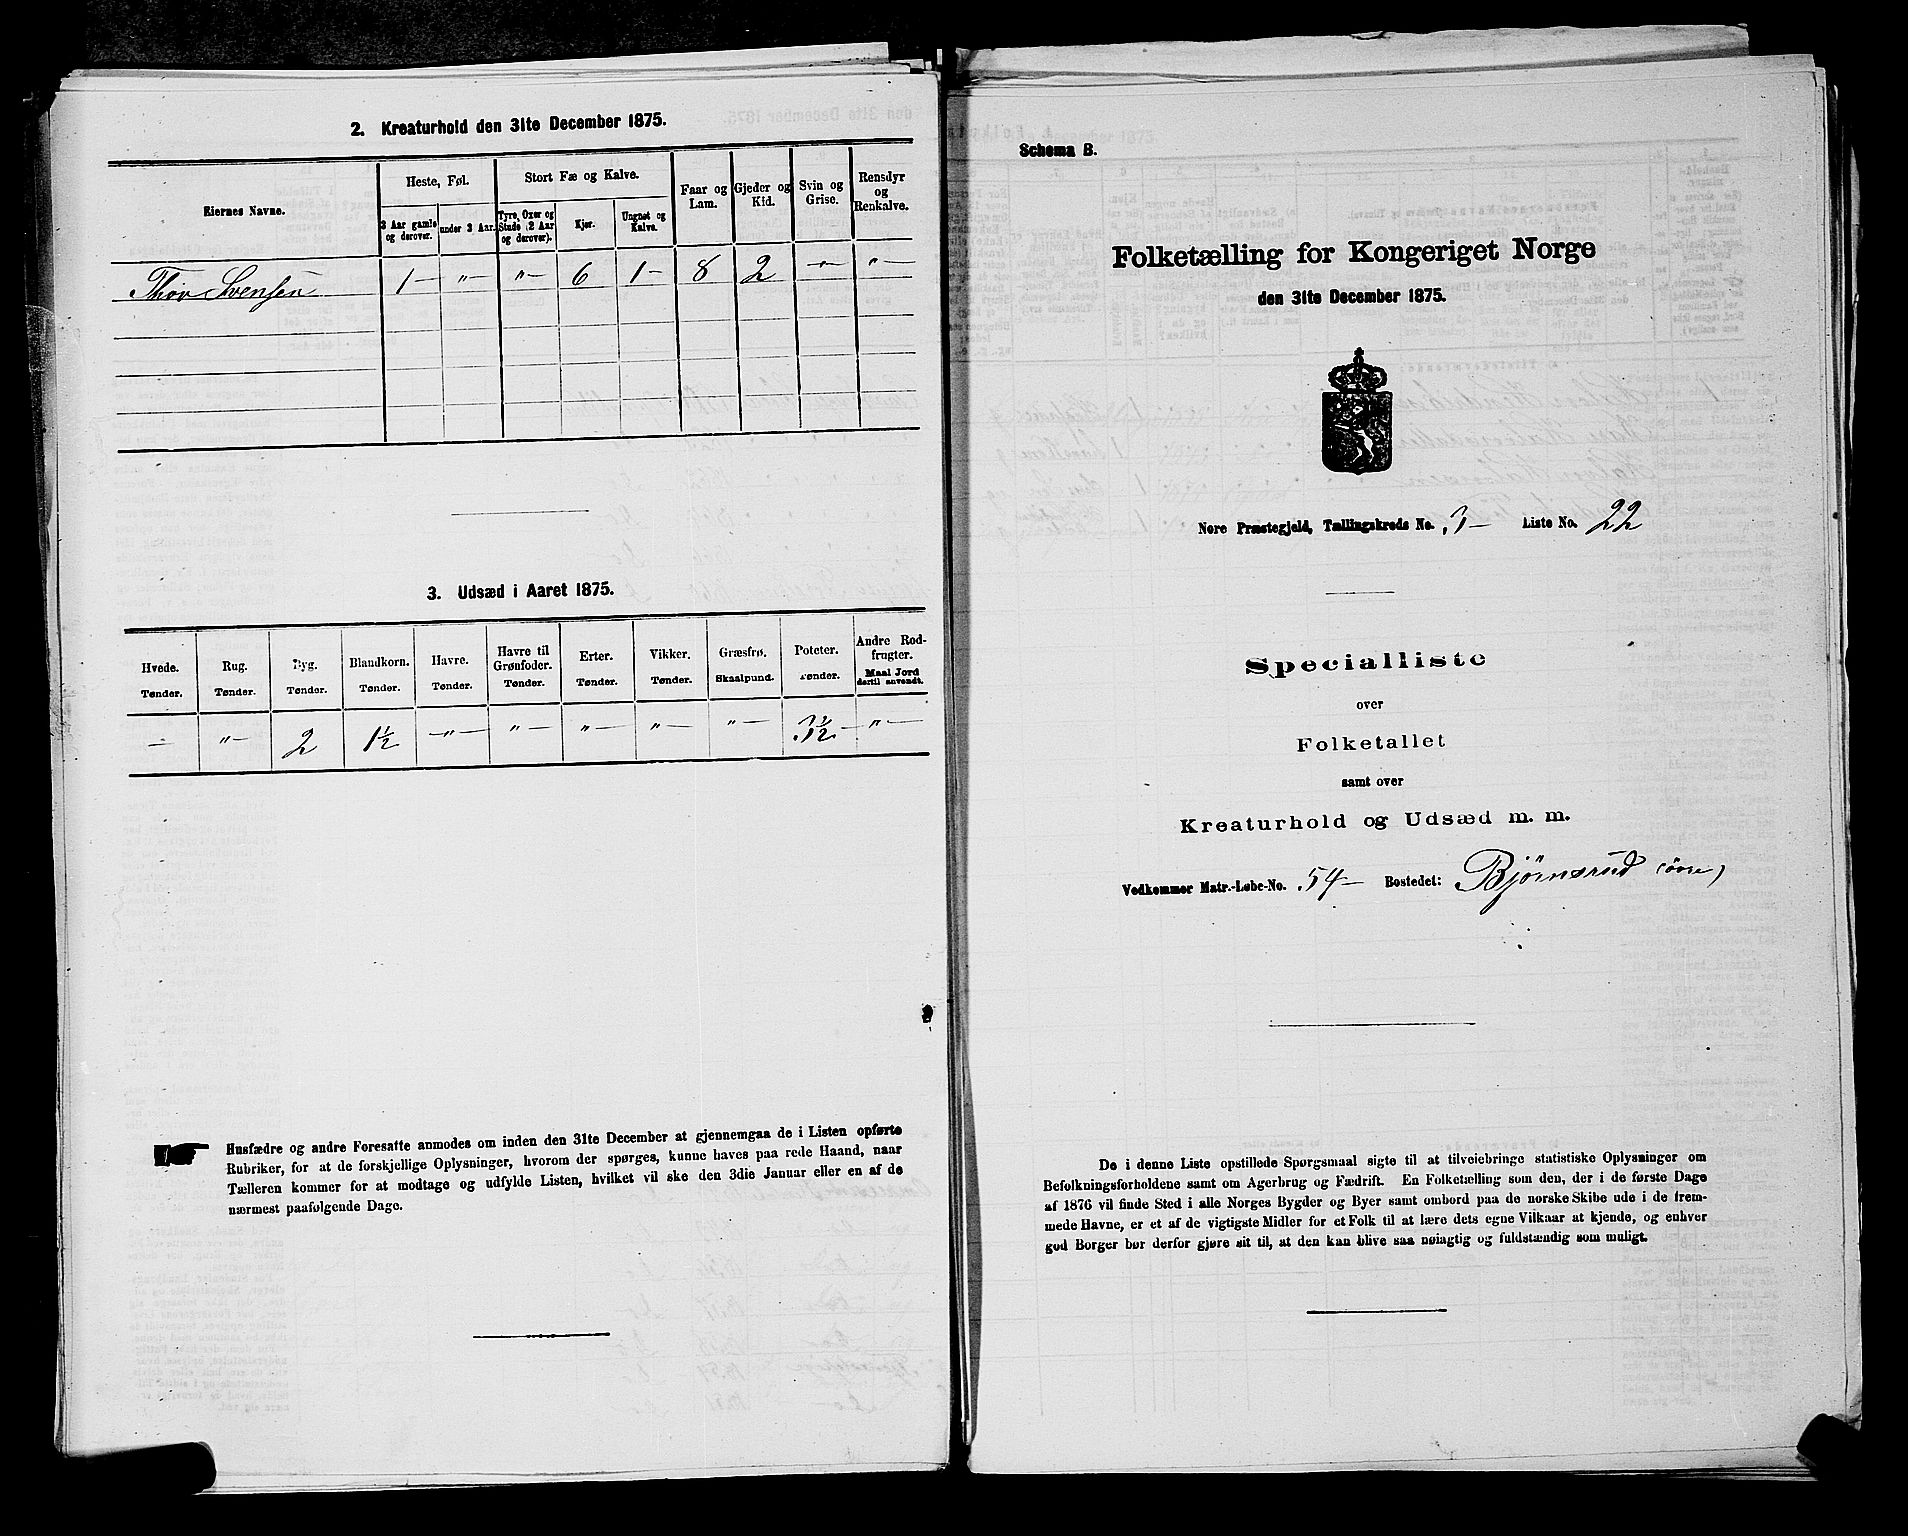 2. Kreaturhold den 31te December 1875.
Eiernes Navne.
Heste, Føl.
Stort Fæ og Kalve.
Faar og Lam.
Gjeder og Kid.
Svin og Grise.
Rensdyr og Renkalve.
3 Aar gamle og derover.
under 3 Aar.
Tyre, Oxer og Stude (2 Aar og derover).
Kjør.
Ungnøt og Kalve.
Thov Svensen 1 — " — " — 6 1 — 8 2 " — " —
3. Udsæd i Aaret 1875.
Hvede. Rug. Byg. Blandkorn. Havre. Havre til Grønfoder. Erter. Vikker. Græsfrø. Poteter. Andre Rodfrugter.
Tønder. Tønder. Tønder. Tønder. Tønder. Tønder. Tønder. Tønder. Skaalpund. Tønder. Maal Jord dertil anvendt.
— " — 2 1½ — " — " — " — " — " — " —
Husfædre og andre Foresatte anmodes om inden den 31te December at gjennemgaa de i Listen opførte
Rubriker, for at de forskjellige Oplysninger, hvorom der spørges, kunne haves paa rede Haand, naar
Tælleren kommer for at modtage og udfylde Listen, hvilket vil ske den 3die Januar eller en af de
nærmest paafølgende Dage.
Schema B.
Folketælling for Kongeriget Norge
den 31te December 1875.
Nore Præstegjeld, Tællingskreds No. 3 — Liste No. 22
Specialliste
over
Folketallet
samt over
Kreaturhold og Udsæd m. m.
Vedkommer Matr.-Løbe-No. 54 — Bostedet: Bjørnsrud (øvre)
De i denne Liste opstillede Spørgsmaal sigte til at tilveiebringe statistiske Oplysninger om
Befolkningsforholdene samt om Agerbrug og Fædrift. En Folketælling som den, der i de første Dage
af 1876 vil finde Sted i alle Norges Bygder og Byer samt ombord paa de norske Skibe ude i de frem-
mede Havne, er et af de vigtigste Midler for et Folk til at lære dets egne Vilkaar at kjende, og enhver
god Borger bør derfor gjøre sit til, at den kan blive saa nøiagtig og fuldstændig som muligt.